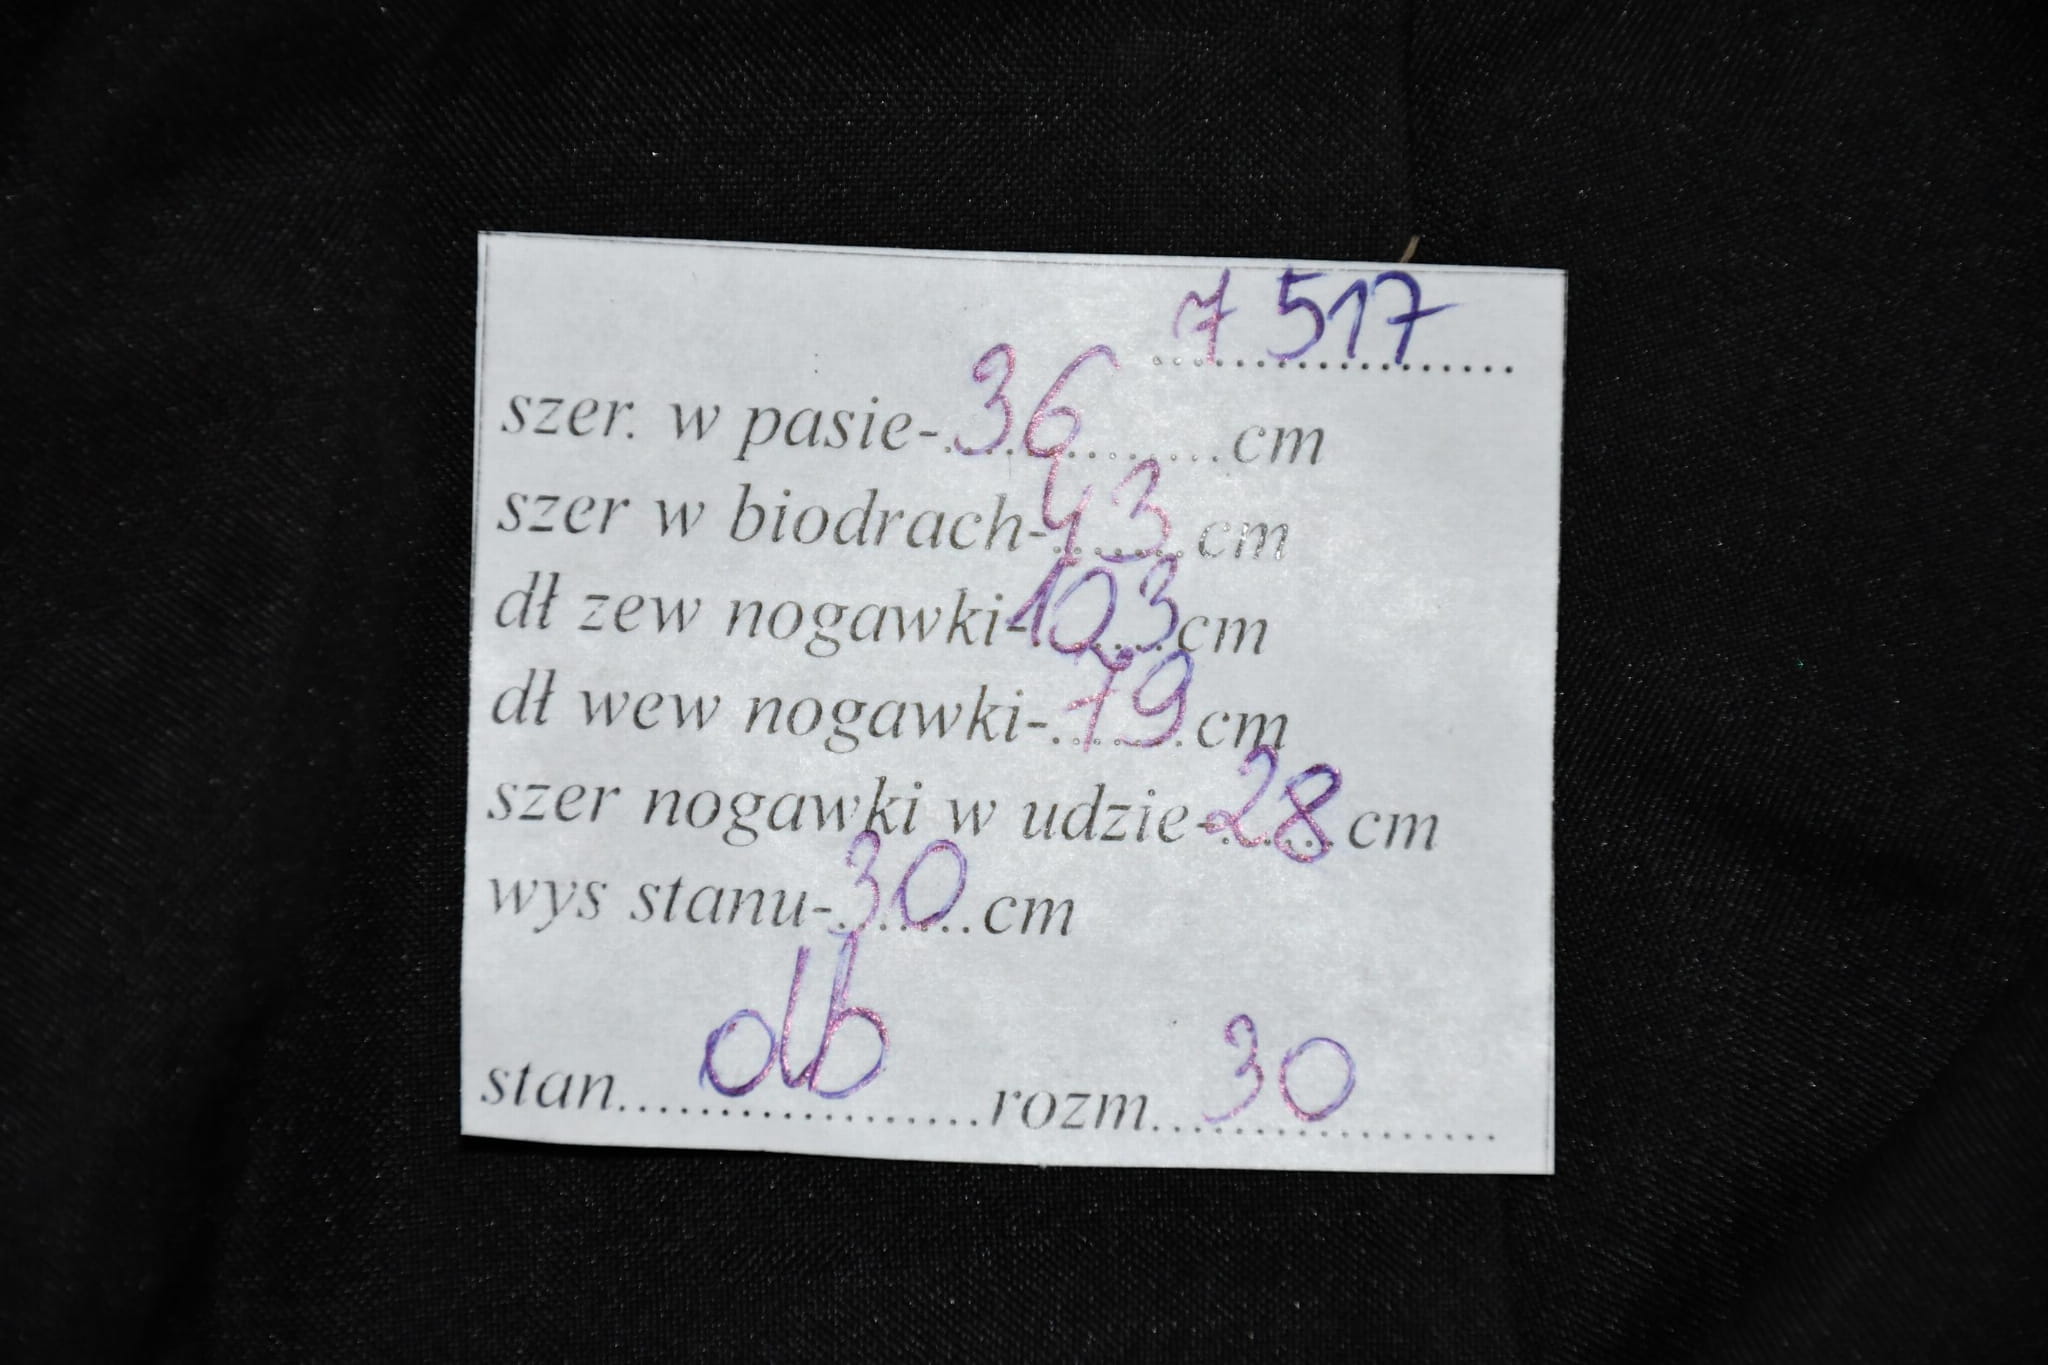 7 517
szer. w pasie-.36.......cm
szer w biodrach-.43..cm
dł zew nogawki-103cm
dł wew nogawki-.79.cm
szer nogawki w udzie-28.cm
wys stanu-.30..cm
stan......db......rozm...30.......